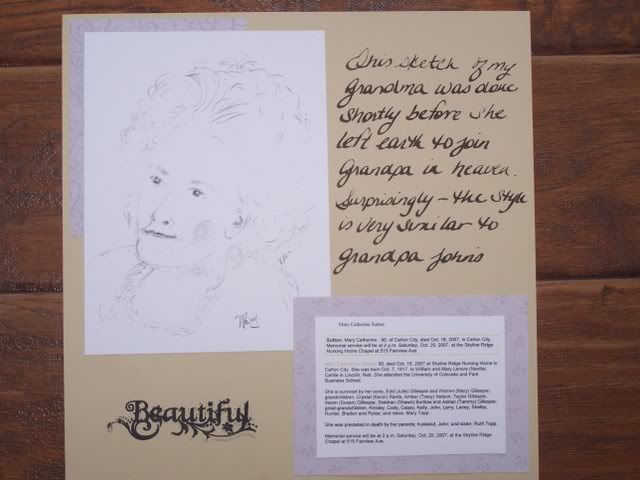 This sketch of my
Grandma was done
shortly before she
left earth to join
Grandpa in heaven.
Surprisingly - the style
is very similar to
Grandpa John's
Mary Catherine Sutton
Sutton, Mary Catherine , 90, of Cañon City, died Oct. 16, 2007, in Cañon City.
Memorial service will be at 2 p.m. Saturday, Oct. 20, 2007, at the Skyline Ridge
Nursing Home Chapel at 515 Fairview Ave.
90, died Oct. 16, 2007 at Skyline Ridge Nursing Home in
Cañon City. She was born Oct. 7, 1917, to William and Mary Lenore (Neville)
Carlile in Lincoln, Neb. She attended the University of Colorado and Park
Business School.
She is survived by her sons, Edd (Julie) Gillespie and Warren (Mary) Gillespie;
grandchildren, Crystal (Kevin) Pantis, Amber (Tracy) Nelson, Taylor Gillespie,
Aaron (Susan) Gillespie, Siobhan (Shawn) Burllow and Adrian (Tammy) Gillespie;
great-grandchildren, Kinsley, Cody, Casey, Kelly, John, Larry, Laney, Shelby,
Hunter, Braden and Rylee; and niece, Mary Topp.
She was preceded in death by her parents; husband, John; and sister, Ruth Topp.
Memorial service will be at 2 p.m. Saturday, Oct. 20, 2007, at the Skyline Ridge
Chapel at 515 Fairview Ave.
Beautiful